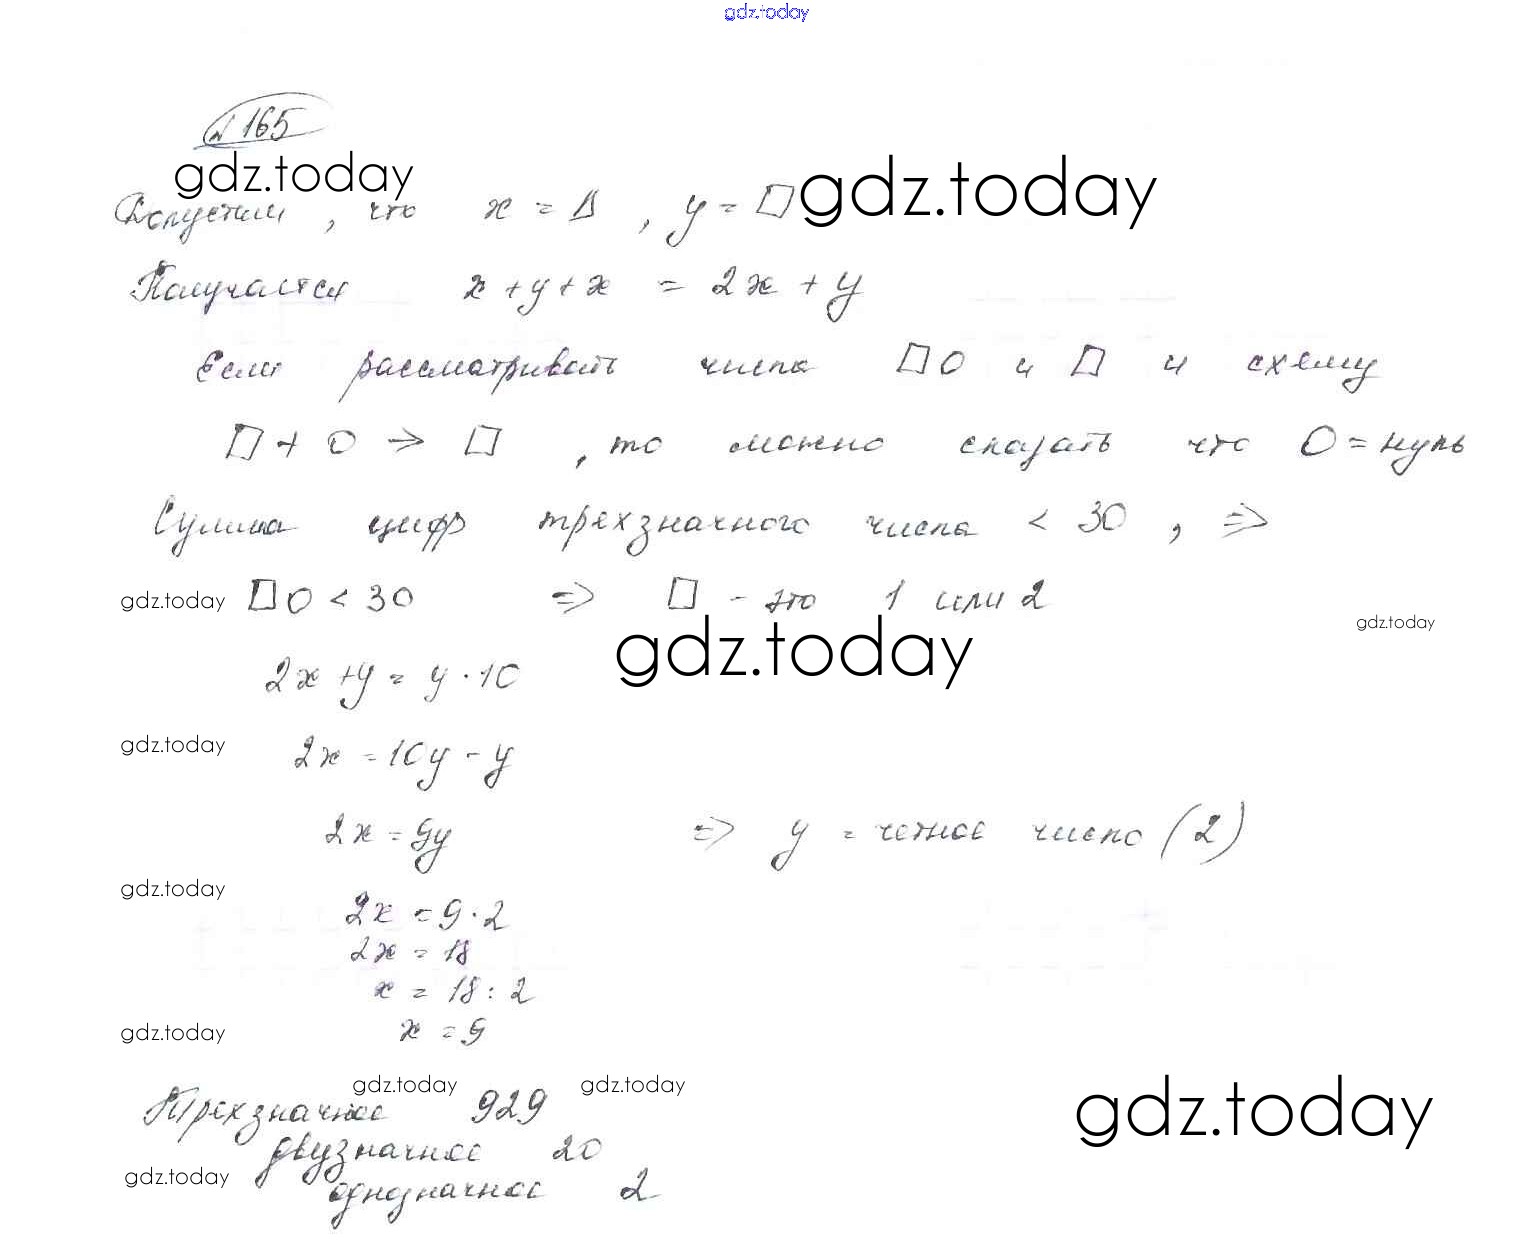 gdz.today
№ 165
gdz.today
gdz.today
Допустим, что x = Δ, y = □
Получается x + y + x = 2x + y
Если рассматривать числа □0 и □ и схему
□ + 0 → □, то можно сказать что 0 = нуль
Сумма цифр трехзначного числа < 30, ⇒
gdz.today
□0 < 30 ⇒ □ - это 1 или 2
gdz.today
gdz.today
2x + y = y · 10
gdz.today
2x = 10y - y
2x = 9y ⇒ y = четное число (2)
gdz.today
2x = 9 · 2
2x = 18
x = 18 : 2
gdz.today
x = 9
gdz.today
gdz.today
gdz.today
Трехзначное 929
двузначное 20
gdz.today
однозначное 2